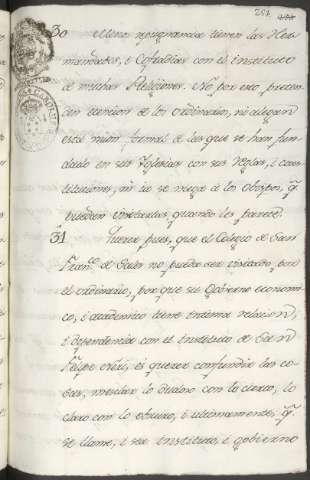 30 Menos repugnancia tienen las Her-
mandades, i Cofradias con el instituto
de muchas Religiones. No por eso preten-
den esencion de los ordinarios, ni alegan
esta union formal de las que se han fun-
dado en sus Iglesias con sus Reglas, i cons-
tituciones, ni se niega a los obispos, q.
puedan visitarlas, quando les parece.
31 Querer pues, que el Colegio de San
Fran.co de Sales no pueda ser visitado por
el ordinario, por que su Gobierno economi-
co, i academico tiene intima relacion,
i dependencia con el Instituto de San
Felipe Neri, es querer confundir las co-
sas, mesclar lo dudoso con lo cierto, lo
claro con lo obscuro, i ultimamente, q.
se llame, i sea Instituto, i gobierno